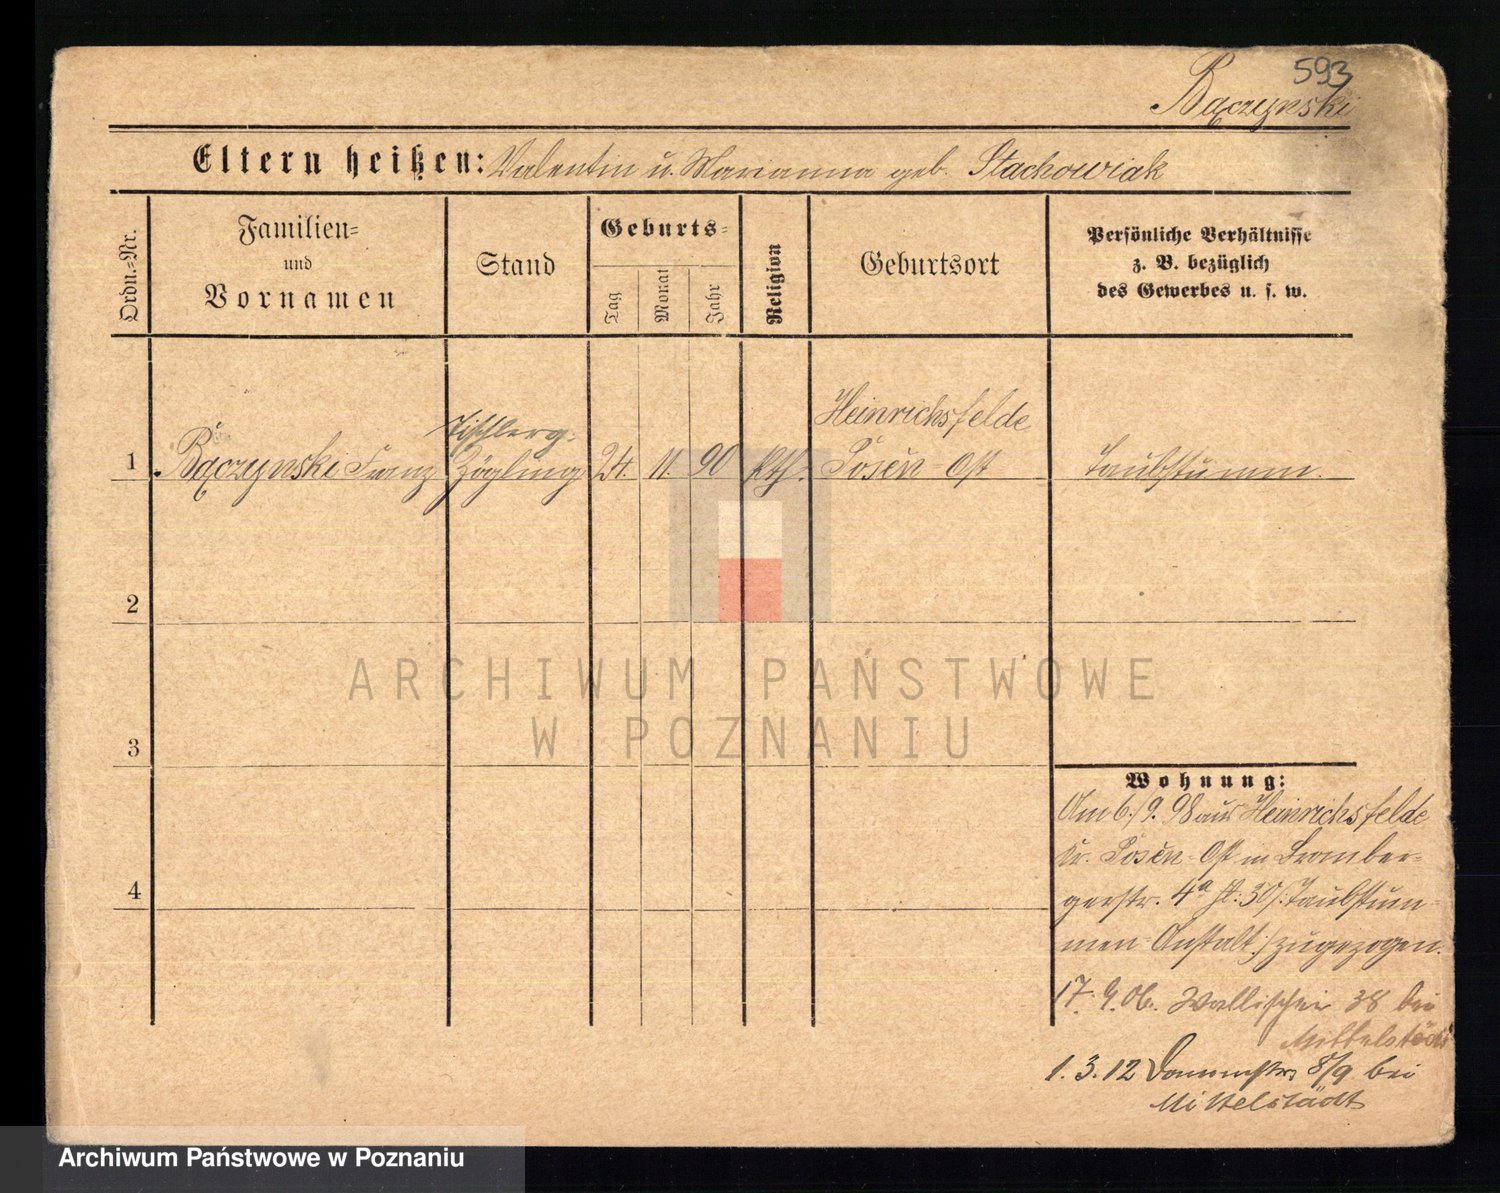 593
Bączynski
Eltern heißen: Valentin u. Marianna geb. Stachowiak
Ordn.-Nr.
Familien-
und
Vornamen
Stand
Geburts-
Tag
Monat
Jahr
Religion
Geburtsort
Persönliche Verhältnisse
z. B. bezüglich
des Gewerbes u. s. w.
Tischlerg.
Heinrichsfelde
1 Bączynski Franz Zögling 24. 11. 90 kth. Posen-Ost Taubstumm.
2
ARCHIWUM PAŃSTWOWE
W POZNANIU
3
Wohnung:
Am 6./9. 98 aus Heinrichsfelde
Kr. Posen-Ost in Bromber-
gerstr. 4a 30/. Taubstum-
men-Anstalt /zugezogen.
4
17. 9. 06. Wallischei 38 bei
Mittelstädt
1. 3. 12 Dammstr. 8/9 bei
Mittelstädt
Archiwum Państwowe w Poznaniu